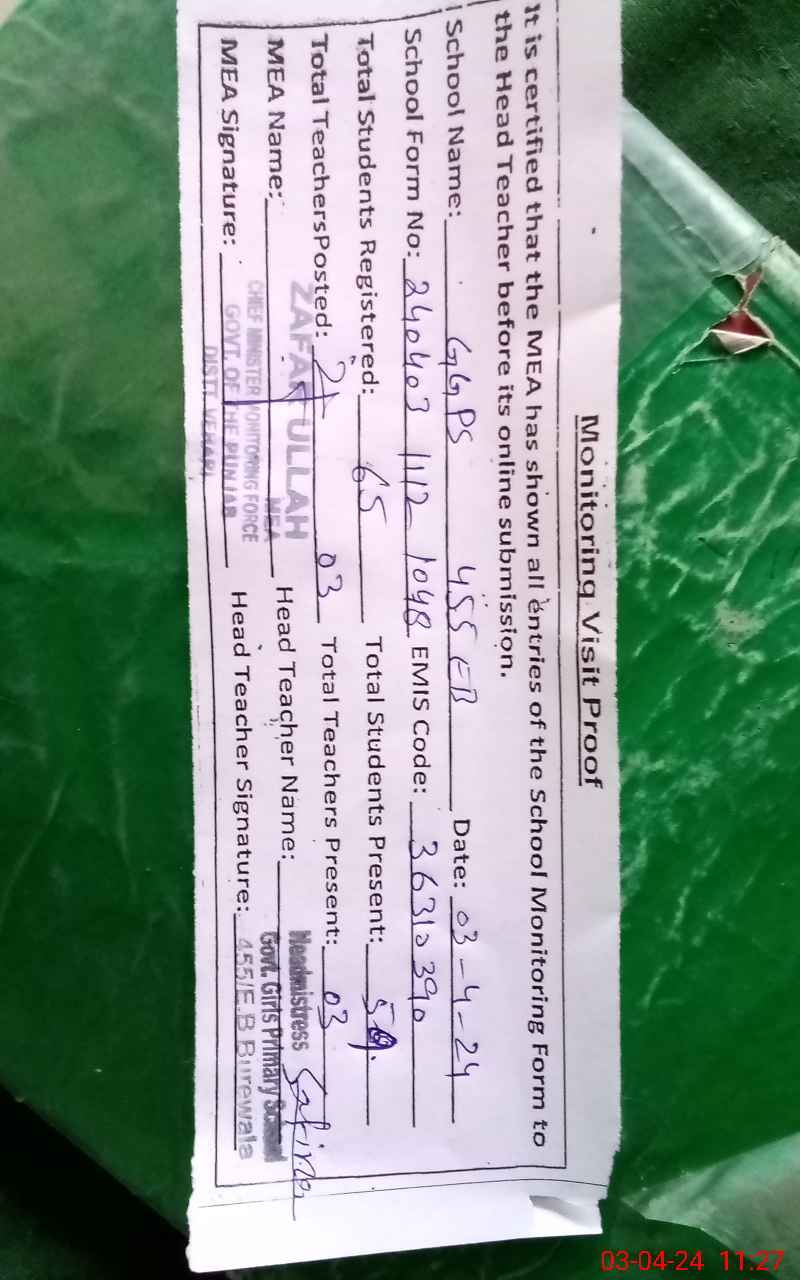 Monitoring Visit Proof
It is certified that the MEA has shown all entries of the School Monitoring Form to
the Head Teacher before its online submission.
School Name: GGPS 455 EB Date: 03-4-24
School Form No: 240403 1112 1048 EMIS Code: 36310390
Total Students Registered: 65 Total Students Present:
Total TeachersPosted: 03 Total Teachers Present: 03
MEA Name: ZAFAR ULLAH Head Teacher Name: Headmistress
MEA
MEA Signature: Head Teacher Signature:
CHIEF MINISTER MONITORING FORCE
GOVT. OF THE PUNJAB
DISTT. VEHARI
Govt. Girls Primary School
455/E.B Burewala
03-04-24 11:27